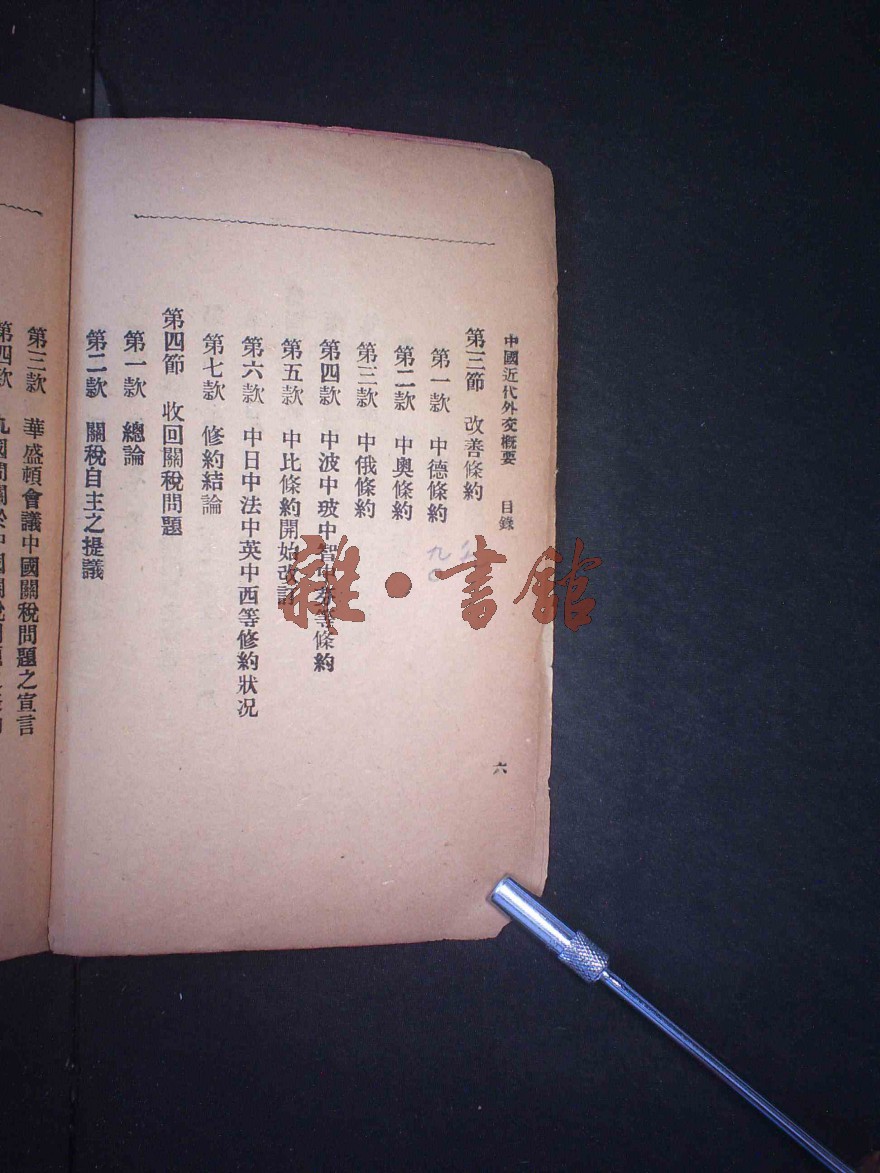 中國近代外交概要 目錄
六
第三節 改善條約
第一款 中德條約
第二款 中奧條約
第三款 中俄條約
第四款 中波中玻中智中芬等條約
第五款 中比條約開始改訂
第六款 中日中法中英中西等修約狀况
第七款 修約結論
第四節 收回關稅問題
第一款 總論
第二款 關稅自主之提議
第三款 華盛頓會議中國關稅問題之宣言
第四款
雜·書館